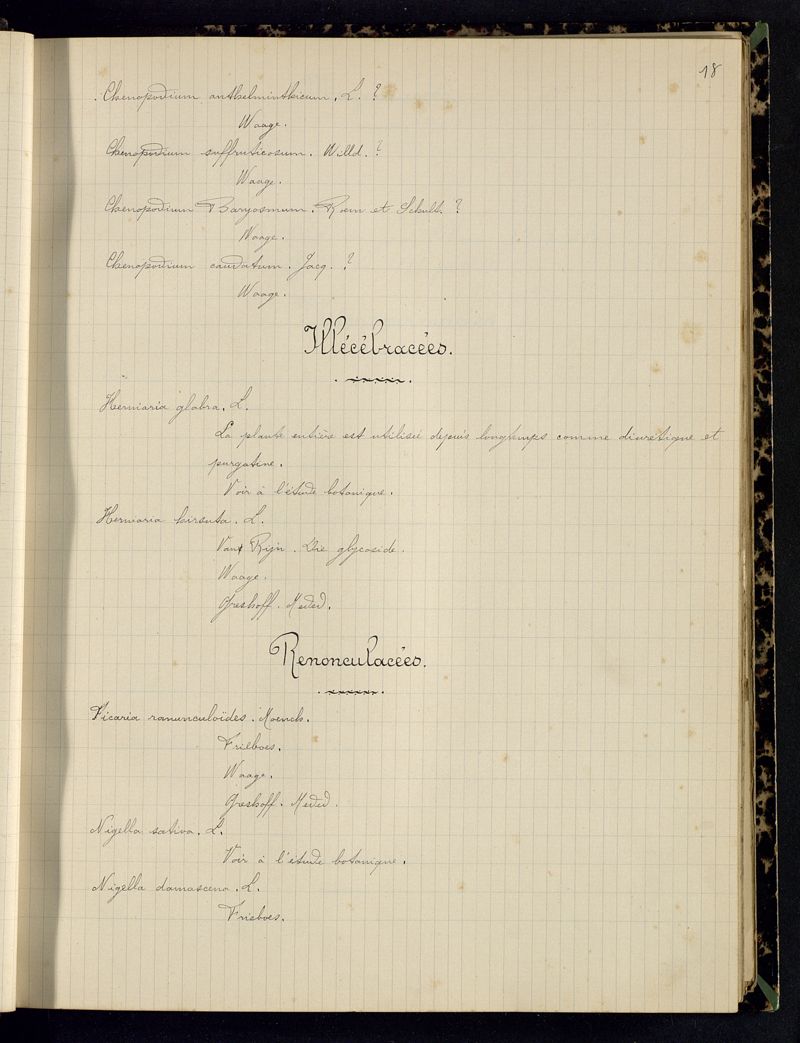 18
Chenopodium anthelminthicum. L. ?
Waage.
Chenopodium suffruticosum. Willd. ?
Waage.
Chenopodium Baryosmum. Roem et Schult. ?
Waage.
Chenopodium caudatum. Jacq. ?
Waage.
Illécébracées.
Herniaria glabra. L.
La plante entière est utilisée depuis longtemps comme diurétique et
purgative.
Voir à l'étude botanique.
Herniaria hirsuta. L.
Van Rijn. Die glycoside.
Waage.
Greshoff. Meded.
Renonculacées.
Ficaria ranunculoïdes. Moench.
Frieboes.
Waage.
Greshoff. Meded.
Nigella sativa. L.
Voir à l'étude botanique.
Nigella damascena. L.
Frieboes.